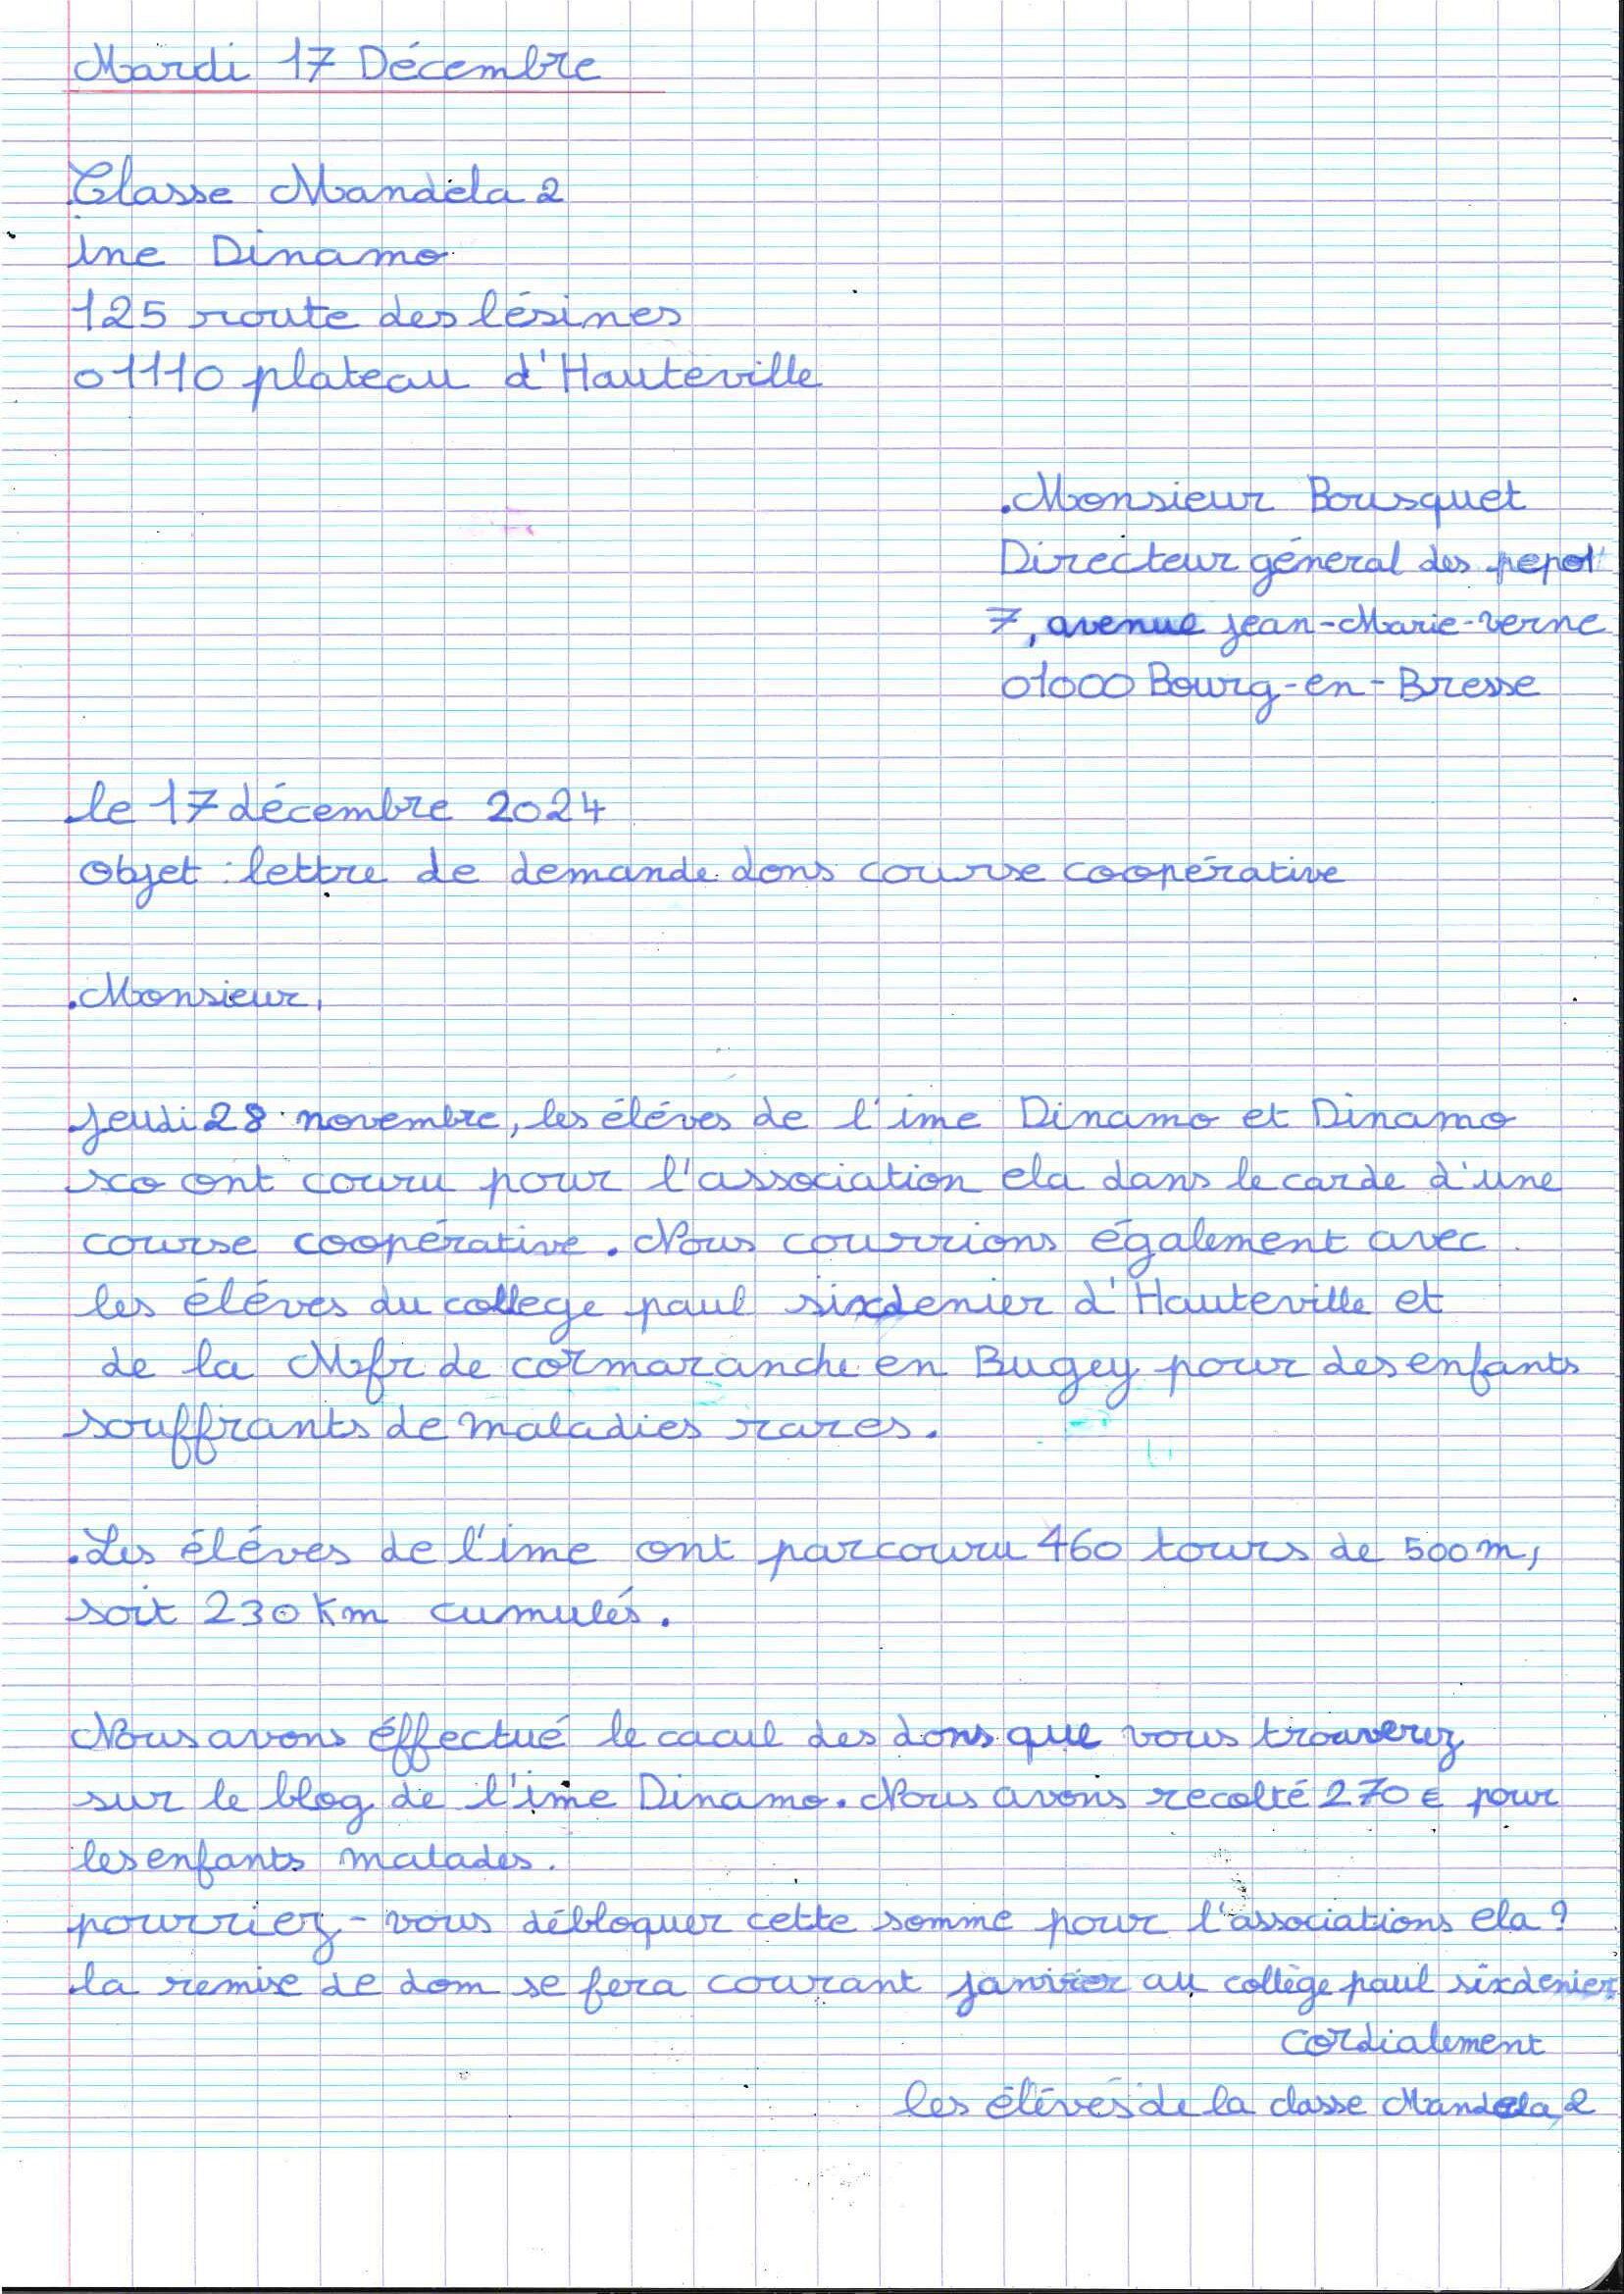 Mardi 17 Décembre
Classe Mandéla 2
ine Dinamo
125 route des lésines
01110 plateau d'Hauteville
Monsieur Bousquet
Directeur géneral des
7, avenue jean-Marie-verne
01000 Bourg-en-Bresse
le 17 décembre 2024
Objet : lettre de demande dons course coopérative
Monsieur,
jeudi 28 novembre, les éléves de l'ime Dinamo et Dinamo
sco ont couru pour l'association ela dans le carde d'une
course coopérative. Nous courrions également avec
les éléves du college paul sixdenier d'Hauteville et
de la Mfr de cormaranche en Bugey pour des enfants
souffrants de maladies rares.
Les éléves de l'ime ont parcouru 460 tours de 500 m,
soit 230 km cumulés.
Nous avons éffectué le cacul des dons que vous trouverez
sur le blog de l'ime Dinamo. Nous avons recolté 270 € pour
les enfants malades.
pourriez-vous débloquer cette somme pour l'associations ela ?
la remise de dom se fera courant janvier au collège paul sixdenier
cordialement
les éléves de la classe Mandela 2